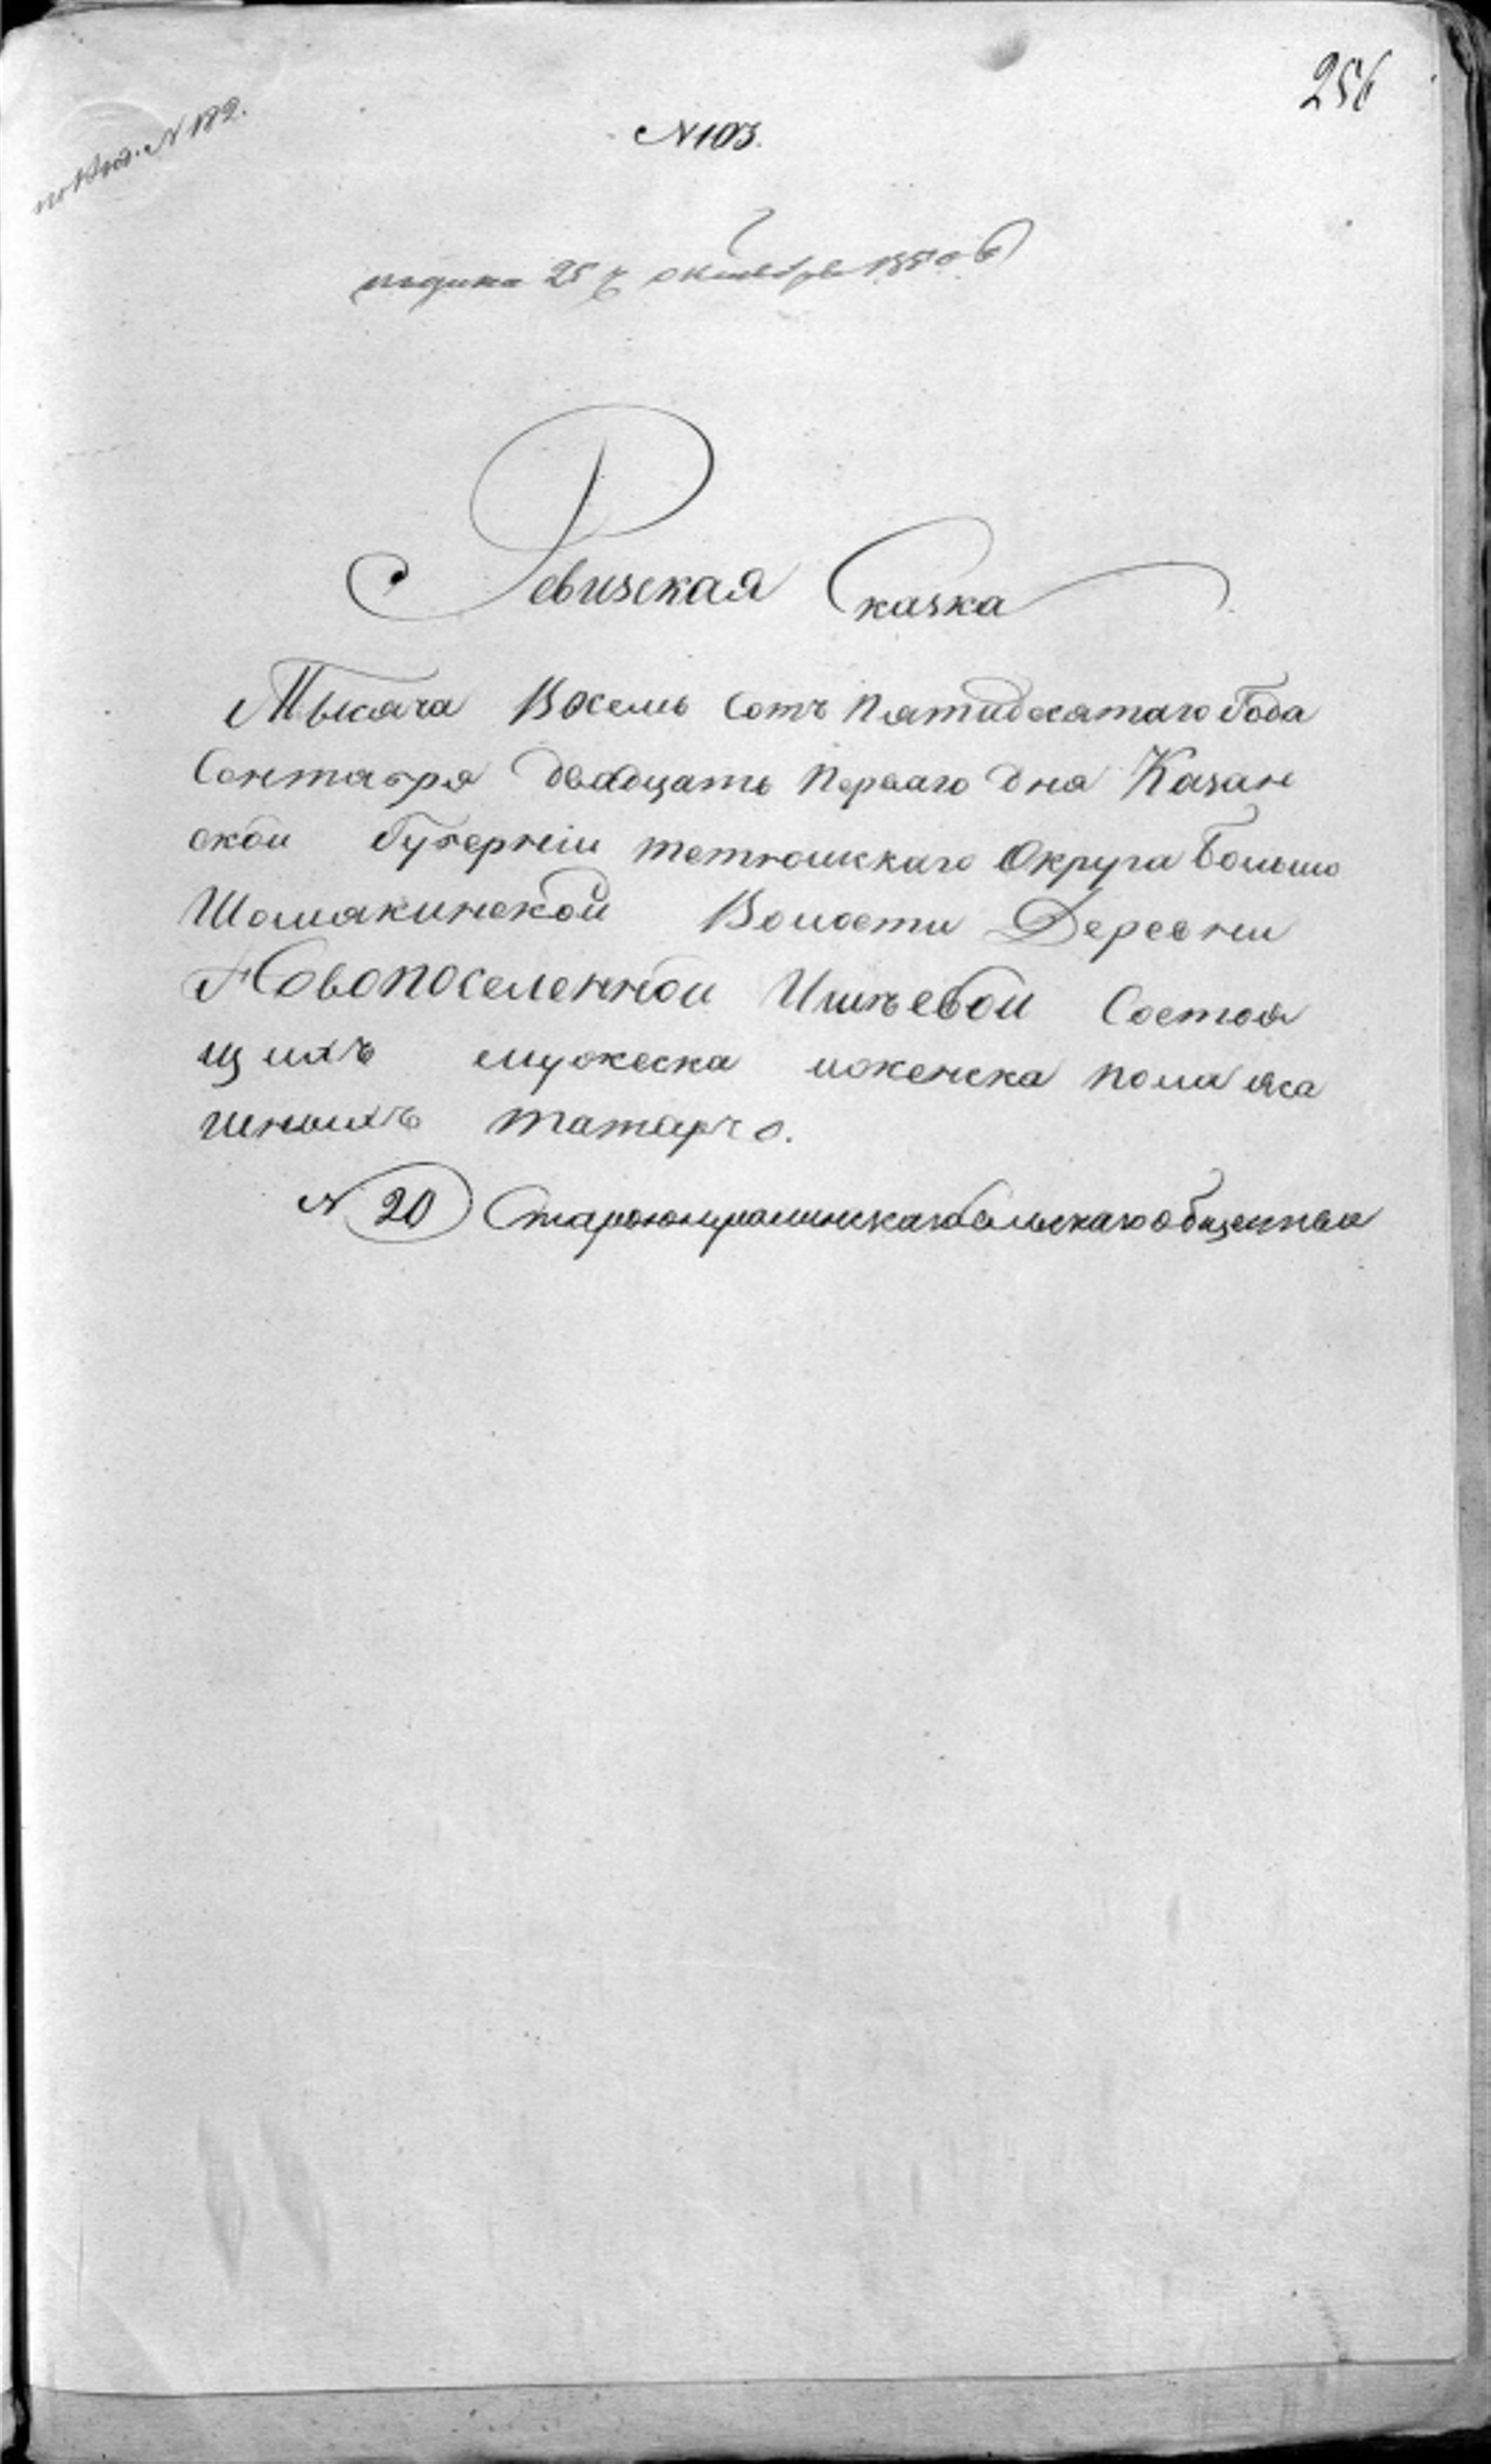 256
N 103.
N 182.
подана 25 октября 1850
Ревизская Сказка
Тысяча Восемь Сотъ Пятидесятаго Года
Сентября двадцать Перваго дня Казан
ской Губерніи тетюшскаго Округа Больше
Шемякинской Волости Деревни
Новопоселенной Ишѣевой Состоя
щихъ мужеска иженска пола яса
шныхъ татаръ о.
N 20 Сельскаго общества